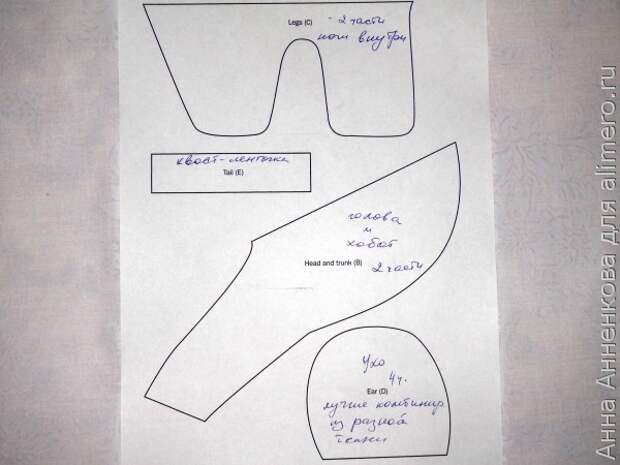 Legs (C) - 2 части
ноги внутри
хвост-ленточка
Tail (E)
голова
и
хобот
Head and trunk (B)
2 части
Ухо
4ч.
Ear (D)
лучше комбинир
из разной
ткани
Анна Анненкова для alimero.ru